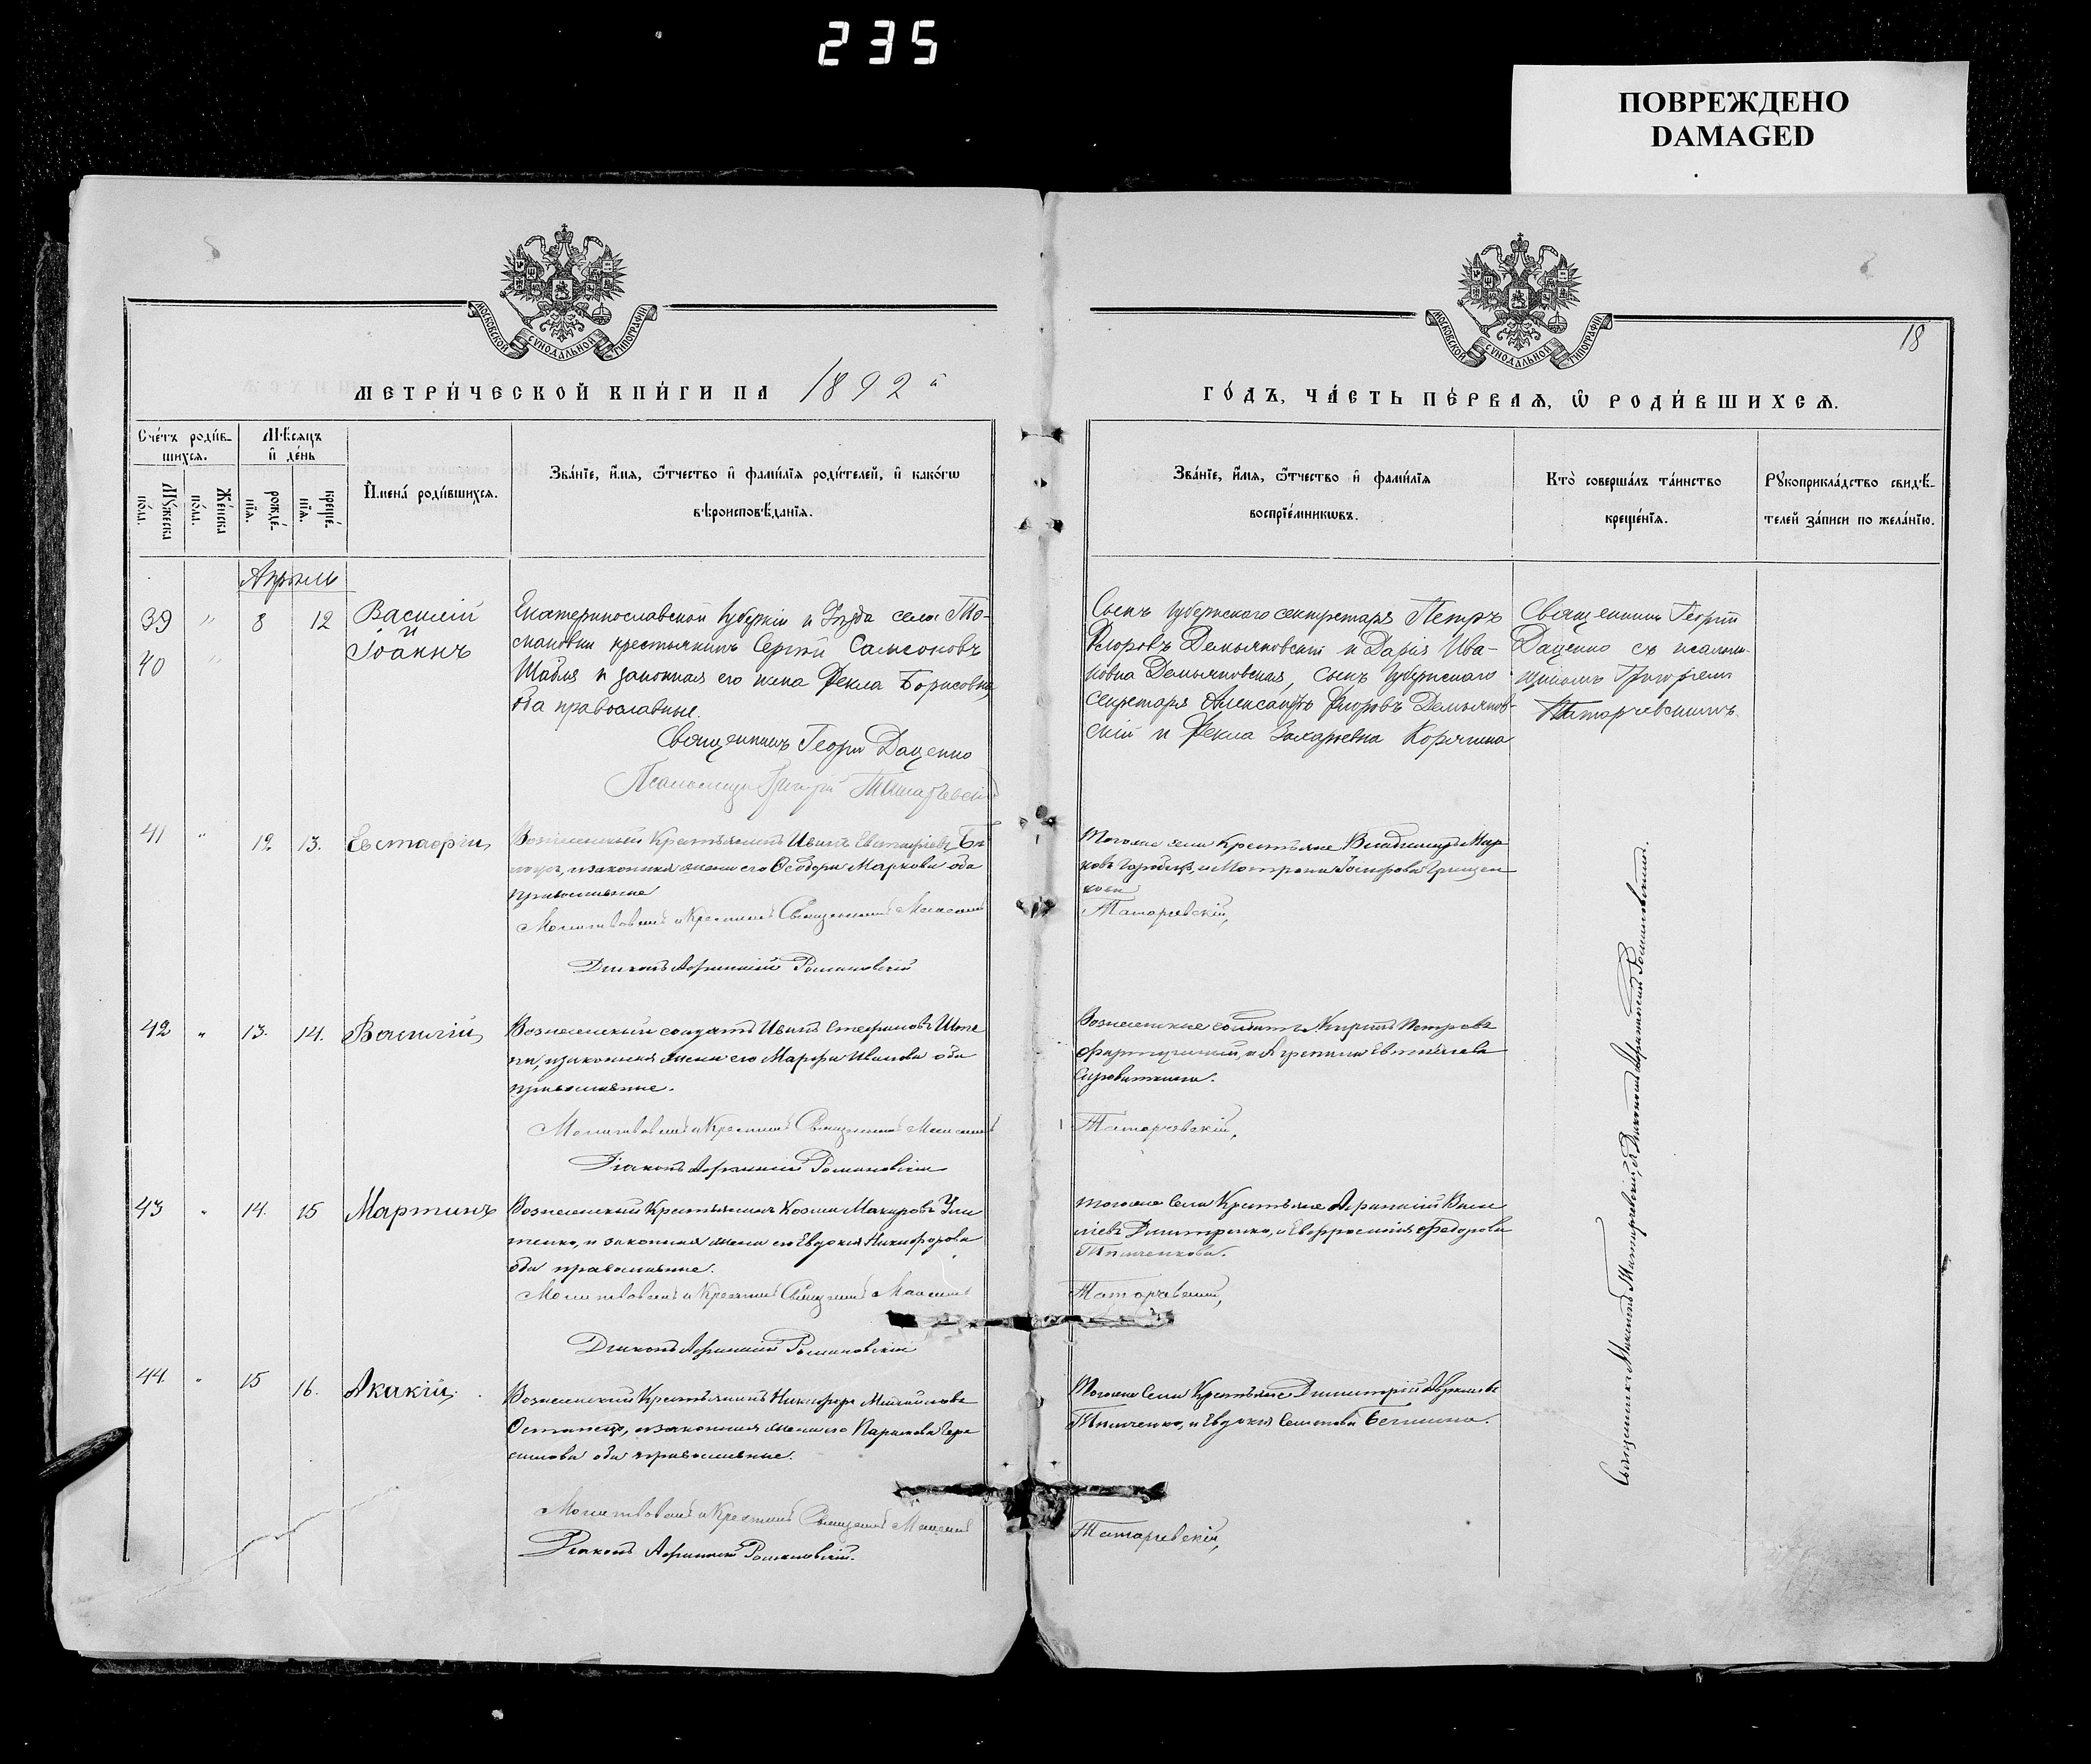 235
ПОВРЕЖДЕНО
DAMAGED
МОСКОВСКОЙ СѴНОДАЛЬНОЙ ТИПОГРАФІИ
МОСКОВСКОЙ СѴНОДАЛЬНОЙ ТИПОГРАФІИ
18
МЕТРИ́ЧЕСКОЙ КНИ́ГИ НА 1892 й
ГО́ДЪ, ЧА́СТЬ ПЕ́РВАѦ, Ѡ РОДИ́ВШИХСѦ.
Сче́тъ роди́в-
шихсѧ.
Мꙋжеска по́ла.
Же́нска по́ла.
Мѣ́сяцъ
и҆ де́нь
рожде́-
нїѧ.
креще́-
нїѧ.
И҆мена̀ роди́вшихсѧ.
Зва́нїе, и҆́мѧ, ѻ҆́тчество и҆ фами́лїѧ роди́телей, и҆ како́гѡ
вѣроисповѣ́данїѧ.
Зва́нїе, и҆́мѧ, ѻ҆́тчество и҆ фами́лїѧ
воспрїе́мникѡвъ.
Кто̀ соверша́лъ та́инство
креще́нїѧ.
Рꙋкоприкла́дство свидѣ́-
телей за́писи по жела́нїю.
Апрѣль
39 " 8 12 Василій
и
40 " Іоаннъ
Екатеринославской губерніи и Уѣзда села То-
маковки крестьянинъ Сергій Самсоновъ
Шабля и законная его жена Ѳекла Борисовна,
оба православные.
Священникъ Георгій Даценко
Псаломщикъ Григорій Татарчевскій
Сынъ губернскаго секретаря Петръ
Ѳеоровъ Демьяновскій и Дарія Ива-
новна Демьяновская, Сынъ губернскаго
секретаря Александръ Ѳеоровъ Демьянов-
скій и Ѳекла Захарьевна Корячина
Священникъ Георгій
Даценко съ псалом-
щикомъ Григоріемъ
Татарчевскимъ.
41 " 12 13. Евстафій,
Вознесенскій Крестьянинъ Иванъ Евстафіевъ
и законная жена его Ѳеодора Маркова оба
православные
Молитвовалъ и Крестилъ Священникъ Максимъ
Діаконъ Афанасій Романовскій
Тогоже села Крестьяне Владимиръ Мар
ковъ и Матрона
Татарчевскій,
42 " 13. 14. Василій,
Вознесенскій солдатъ Иванъ Стефановъ
и законная жена его Марфа Иванова оба
православные.
Молитвовалъ и Крестилъ Священникъ Максимъ
Діаконъ Афанасій Романовскій
Вознесенские Петровъ
Татарчевскій,
43 " 14. 15 Мартинъ
Вознесенскій Крестьянинъ Козма Макаровъ
и законная жена его Евдокія Никифорова
оба православные.
Молитвовалъ и Крестилъ Священникъ Максимъ
Діаконъ Афанасій Романовскій
тогоже Села Крестьяне Афанасій Васи
ліевъ Дмитренко, и Евфросинія Федорова
Татарчевскій,
44. " 15 16. Акакій,
Вознесенскій Крестьянинъ Никифоръ Михайловъ
и законная жена его Параскева Гера
симова оба православные.
Молитвовалъ и Крестилъ Священникъ Максимъ
Діаконъ Афанасій Романовскій.
Тогоже Села Крестьяне Димитрій
и Евдокія
Татарчевскій,
Священникъ Максимъ Татарчевскій, и Діаконъ Афанасій Романовскій.